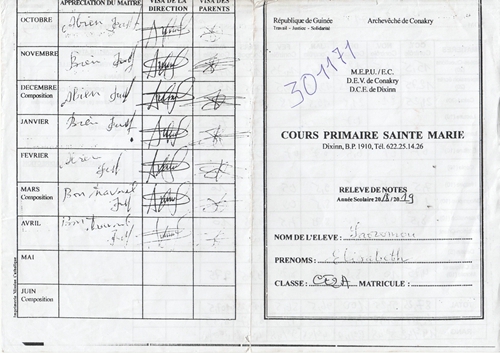 APPRECIATION DU MAITRE
VISA DE LA DIRECTION
VISA DES PARENTS
OCTOBRE
NOVEMBRE
Bien
DECEMBRE
Composition
JANVIER
Bien
FEVRIER
MARS
Composition
Bon travail
AVRIL
MAI
JUIN
Composition
République de Guinée
Travail - Justice - Solidarité
Archevêché de Conakry
301171
M.E.P.U./E.C.
D.E.V. de Conakry
D.C.E. de Dixinn
COURS PRIMAIRE SAINTE MARIE
Dixinn, B.P. 1910, Tél. 622.25.14.26
RELEVE DE NOTES
Année Scolaire 2018/2019
NOM DE L'ELEVE :
PRENOMS : Elisabeth
CLASSE : CE2A MATRICULE :